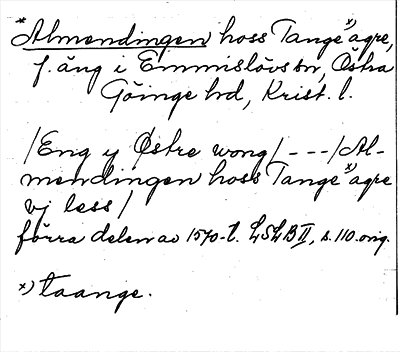 *Almendingen hoss Tange*) agre,
f. äng i Emmislövs sn, Östra
Göinge hd, Krist. l.
/Eng y Østre wong/ - - - /Al-
mendingen hoss Tange*) agre
vj less/
förra delen av 1570-t. LSLB II, s. 110. orig.
*) taange.